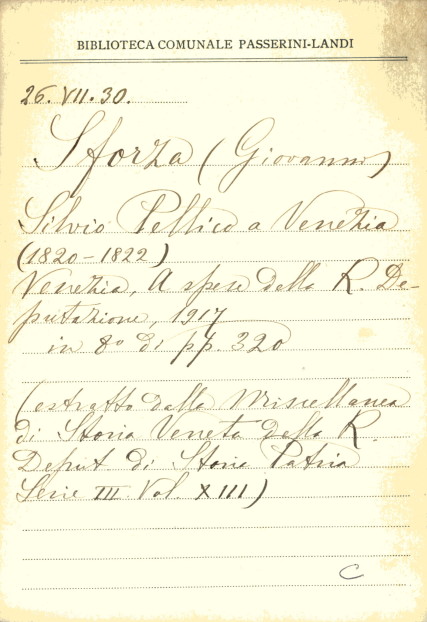 BIBLIOTECA COMUNALE PASSERINI-LANDI
26.VII.30.
Sforza (Giovanni)
Silvio Pellico a Venezia
(1820-1822)
Venezia, A spese della R. De-
putazione, 1917
in 8° di pp. 320
(estratto dalla Miscellanea
di Storia Veneta della R.
Deput. di Storia Patria
Serie III Vol. XIII)
C